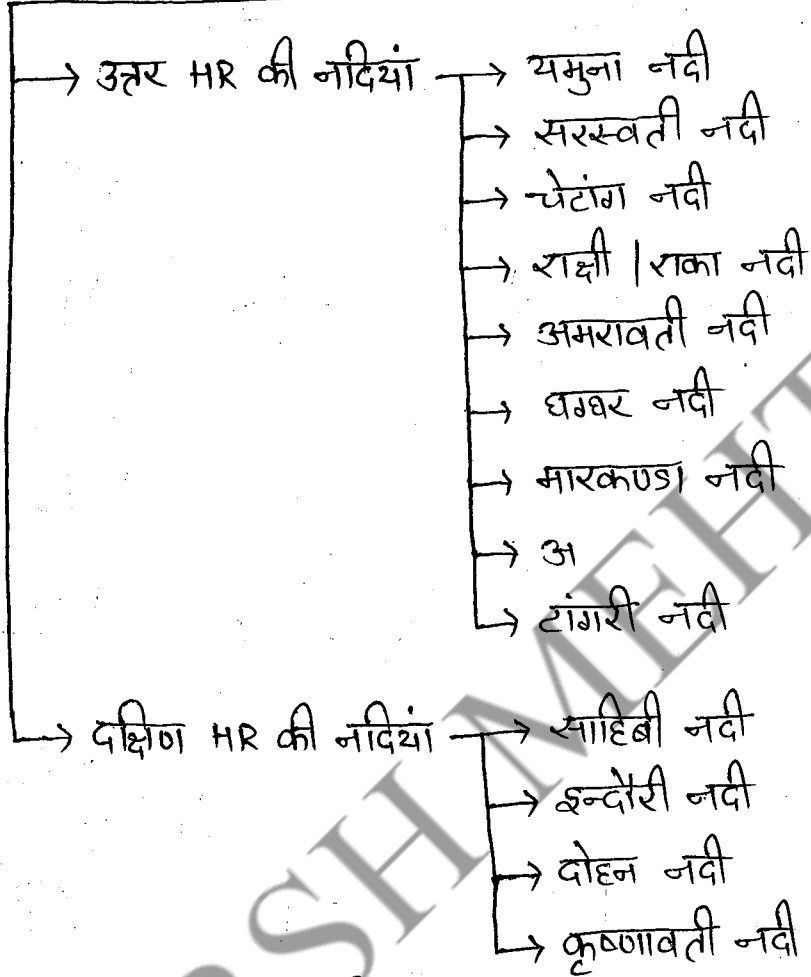 → उत्तर HR की नदियां → यमुना नदी
→ सरस्वती नदी
→ चेटांग नदी
→ राक्षी | राका नदी
→ अमरावती नदी
→ घग्घर नदी
→ मारकण्डा नदी
→ अ
→ टांगरी नदी
→ दक्षिण HR की नदियां → साहिबी नदी
→ इन्दौरी नदी
→ दोहन नदी
→ कृष्णावती नदी
RSH MEHT